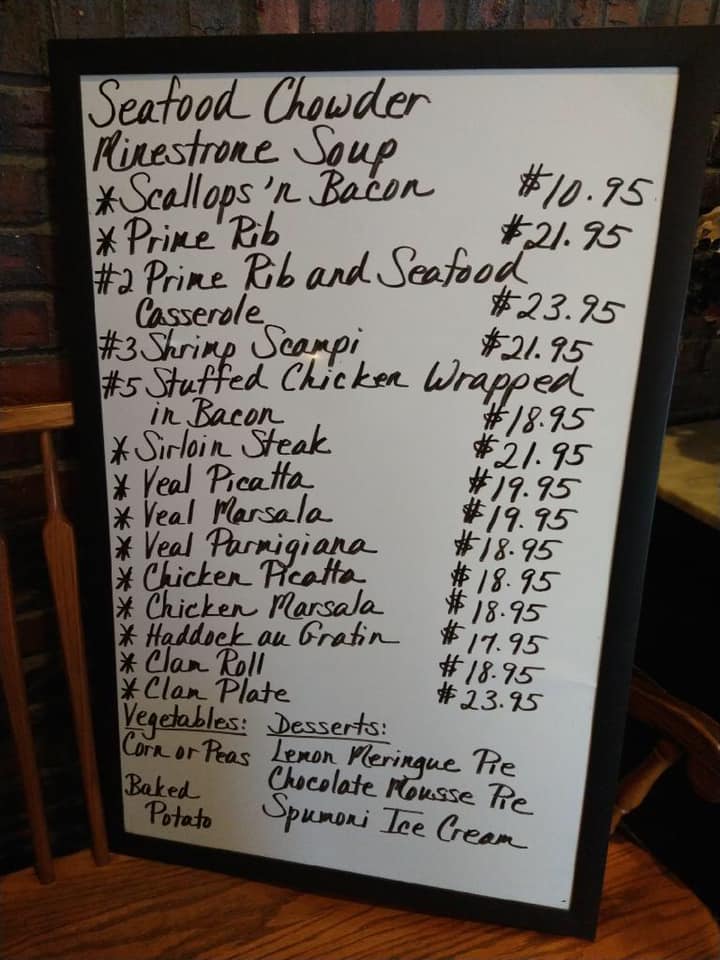 Seafood Chowder
Minestrone Soup
* Scallops 'n Bacon $10.95
* Prime Rib $21.95
#2 Prime Rib and Seafood
Casserole $23.95
#3 Shrimp Scampi $21.95
#5 Stuffed Chicken Wrapped
in Bacon $18.95
* Sirloin Steak $21.95
* Veal Picatta $19.95
* Veal Marsala $19.95
* Veal Parmigiana $18.95
* Chicken Picatta $18.95
* Chicken Marsala $18.95
* Haddock au Gratin $17.95
* Clam Roll $18.95
* Clam Plate $23.95
Vegetables: Desserts:
Corn or Peas Lemon Meringue Pie
Baked Chocolate Mousse Pie
Potato Spumoni Ice Cream